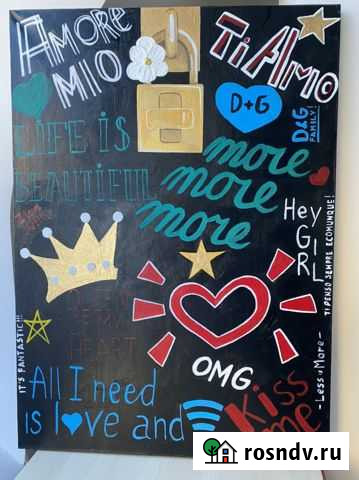 AMORE
MIO
Ti AMO
D+G
D&G
FAMILY!
LIFE IS
BEAUTIFUL
more
more
more
Hey
GIRL
TI PENSO SEMPRE E COMUNQUE!
IT'S FANTASTIC!!!
HEART
OMG
-Less is More-
All I need
is love and
Kiss
me
rosndv.ru